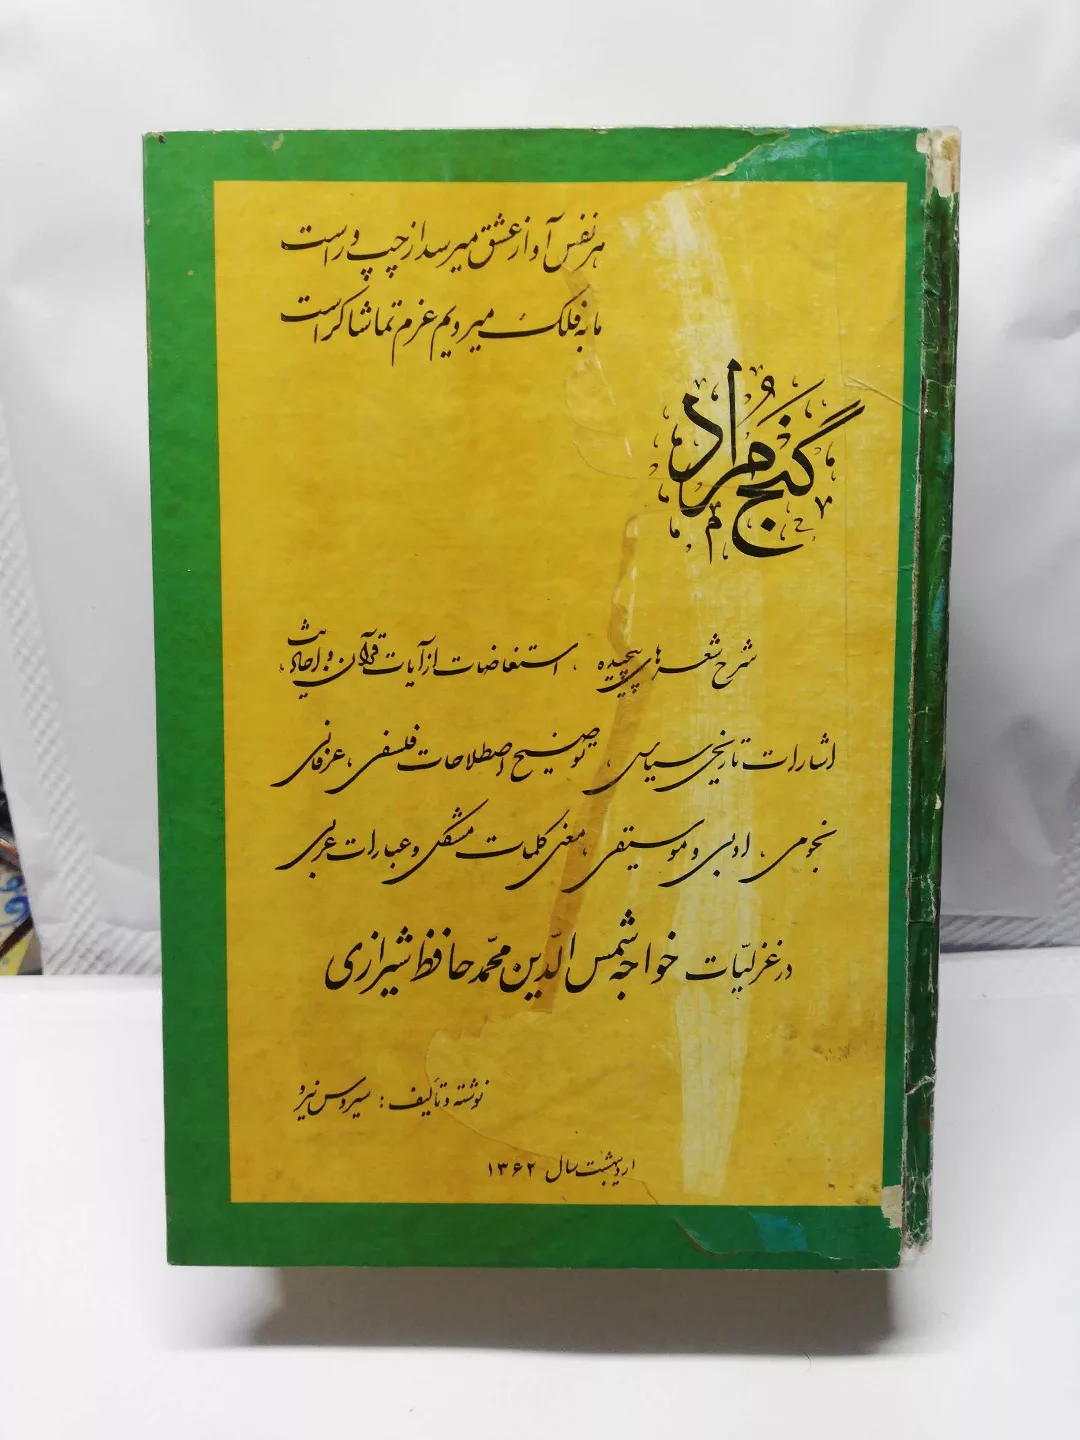 هر نفس آواز عشق میرسد از چپ و راست
ما به فلک میرویم عزم تماشا کراست
گنج مُراد
شرح شعرهای پیچیده ، استفاضات از آیات قرآن و احادیث ،
اشارات تاریخی سیاسی ، توضیح اصطلاحات فلسفی ، عرفانی
نجومی ، ادبی و موسیقی ، معنی کلمات مشکل و عبارات عربی
در غزلیّات خواجه شمس الدّین محمّد حافظ شیرازی
نوشته و تألیف : سیروس نیرو
اردیبهشت سال ۱۳۶۲